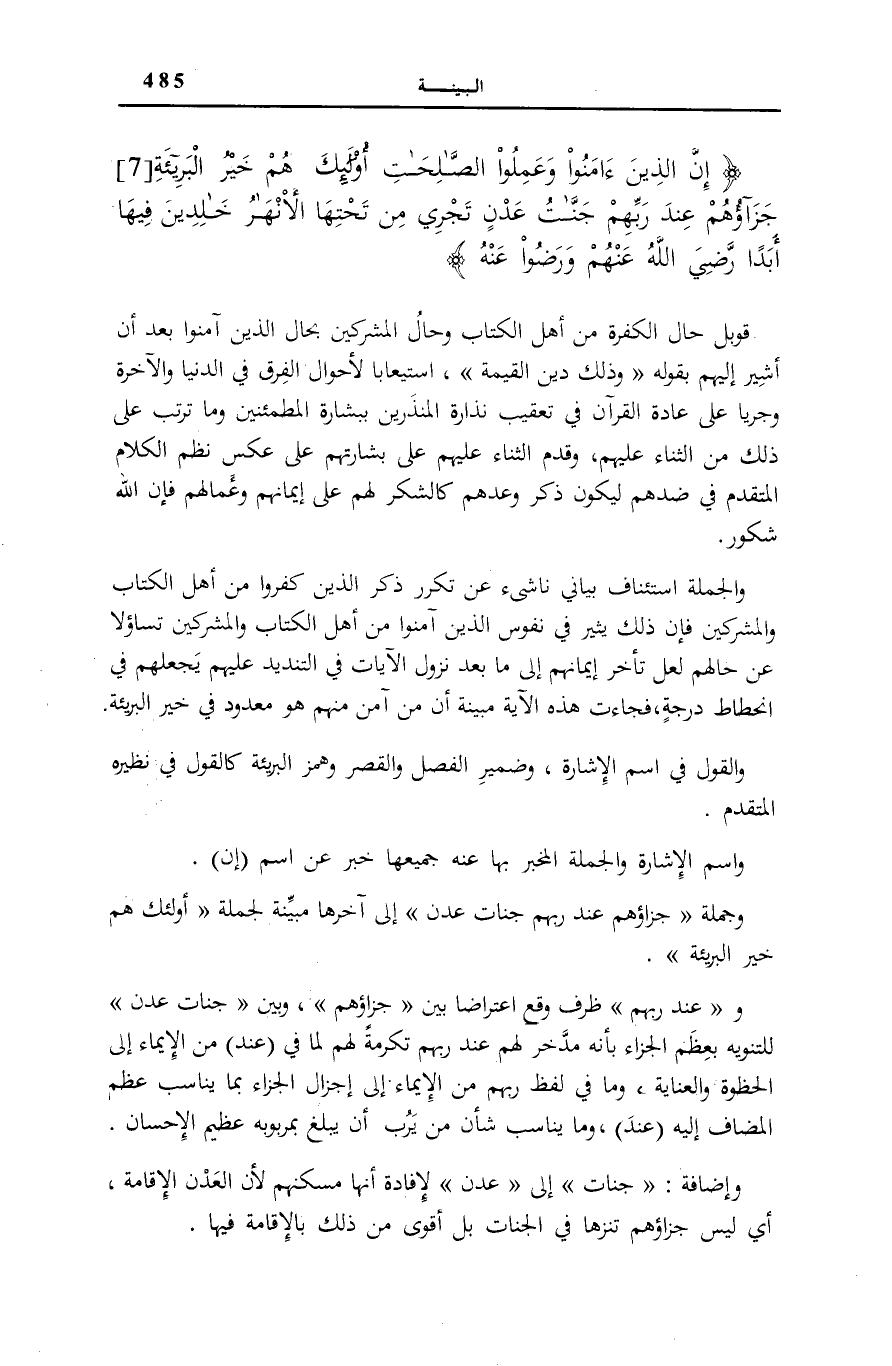 البينــــة 485
﴿ إِنَّ الذِينَ ءَامَنُواْ وَعَمِلُواْ الصَّـٰلِحَـٰتِ أُوْلَـٰٓئِكَ هُمْ خَيْرُ الْبَرِيٓـَٔةِ[7]
جَزَآؤُهُمْ عِندَ رَبِّهِمْ جَنَّـٰتُ عَدْنٍ تَجْرِي مِن تَحْتِهَا الْأَنْهَـٰرُ خَـٰلِدِينَ فِيهَا
أَبَدًا رَّضِيَ اللَّهُ عَنْهُمْ وَرَضُواْ عَنْهُ ﴾
قوبل حال الكفرة من أهل الكتاب وحالُ المشركين بحال الذين آمنوا بعد أن
أشِير إليهم بقوله « وذلك دين القيمة » ، استيعابا لأحوال الفِرق في الدنيا والآخرة
وجريا على عادة القرآن في تعقيب نذارة المنذَرين ببشارة المطمئنين وما ترتب على
ذلك من الثناء عليهم، وقدم الثناء عليهم على بشارتهم على عكس نظم الكلام
المتقدم في ضدهم ليكون ذكر وعدهم كالشكر لهم على إيمانهم وأعمالهم فإن الله
شكور.
والجملة استئناف بياني ناشىء عن تكرر ذكر الذين كفروا من أهل الكتاب
والمشركين فإن ذلك يثير في نفوس الذين آمنوا من أهل الكتاب والمشركين تساؤلا
عن حالهم لعل تأخر إيمانهم إلى ما بعد نزول الآيات في التنديد عليهم يَجعلهم في
انحطاط درجةٍ،فجاءت هذه الآية مبينة أن من آمن منهم هو معدود في خير البريئة.
والقول في اسم الإشارة ، وضميرِ الفصل والقصر وهمز البريئة كالقول في نظيره
المتقدم .
واسم الإشارة والجملة المخبر بها عنه جميعها خبر عن اسم (إن) .
وجملة « جزاؤهم عند ربهم جنات عدن » إلى آخرها مبيِّنة لجملة « أولئك هم
خير البريئة » .
و « عند ربهم » ظرف وقع اعتراضا بين « جزاؤهم » ، وبين « جنات عدن »
للتنويه بعِظَم الجزاء بأنه مدَّخر لهم عند ربهم تكرمةً لهم لما في (عند) من الإيماء إلى
الحظوة والعناية ، وما في لفظ ربهم من الإيماء إلى إجزال الجزاء بما يناسب عظم
المضاف إليه (عندَ) ،وما يناسب شأن من يَرُب أن يبلغ بمربوبه عظيم الإحسان .
وإضافة : « جنات » إلى « عدن » لإفادة أنها مسكنهم لأن العَدْن الإقامة ،
أي ليس جزاؤهم تنزها في الجنات بل أقوى من ذلك بالإقامة فيها .